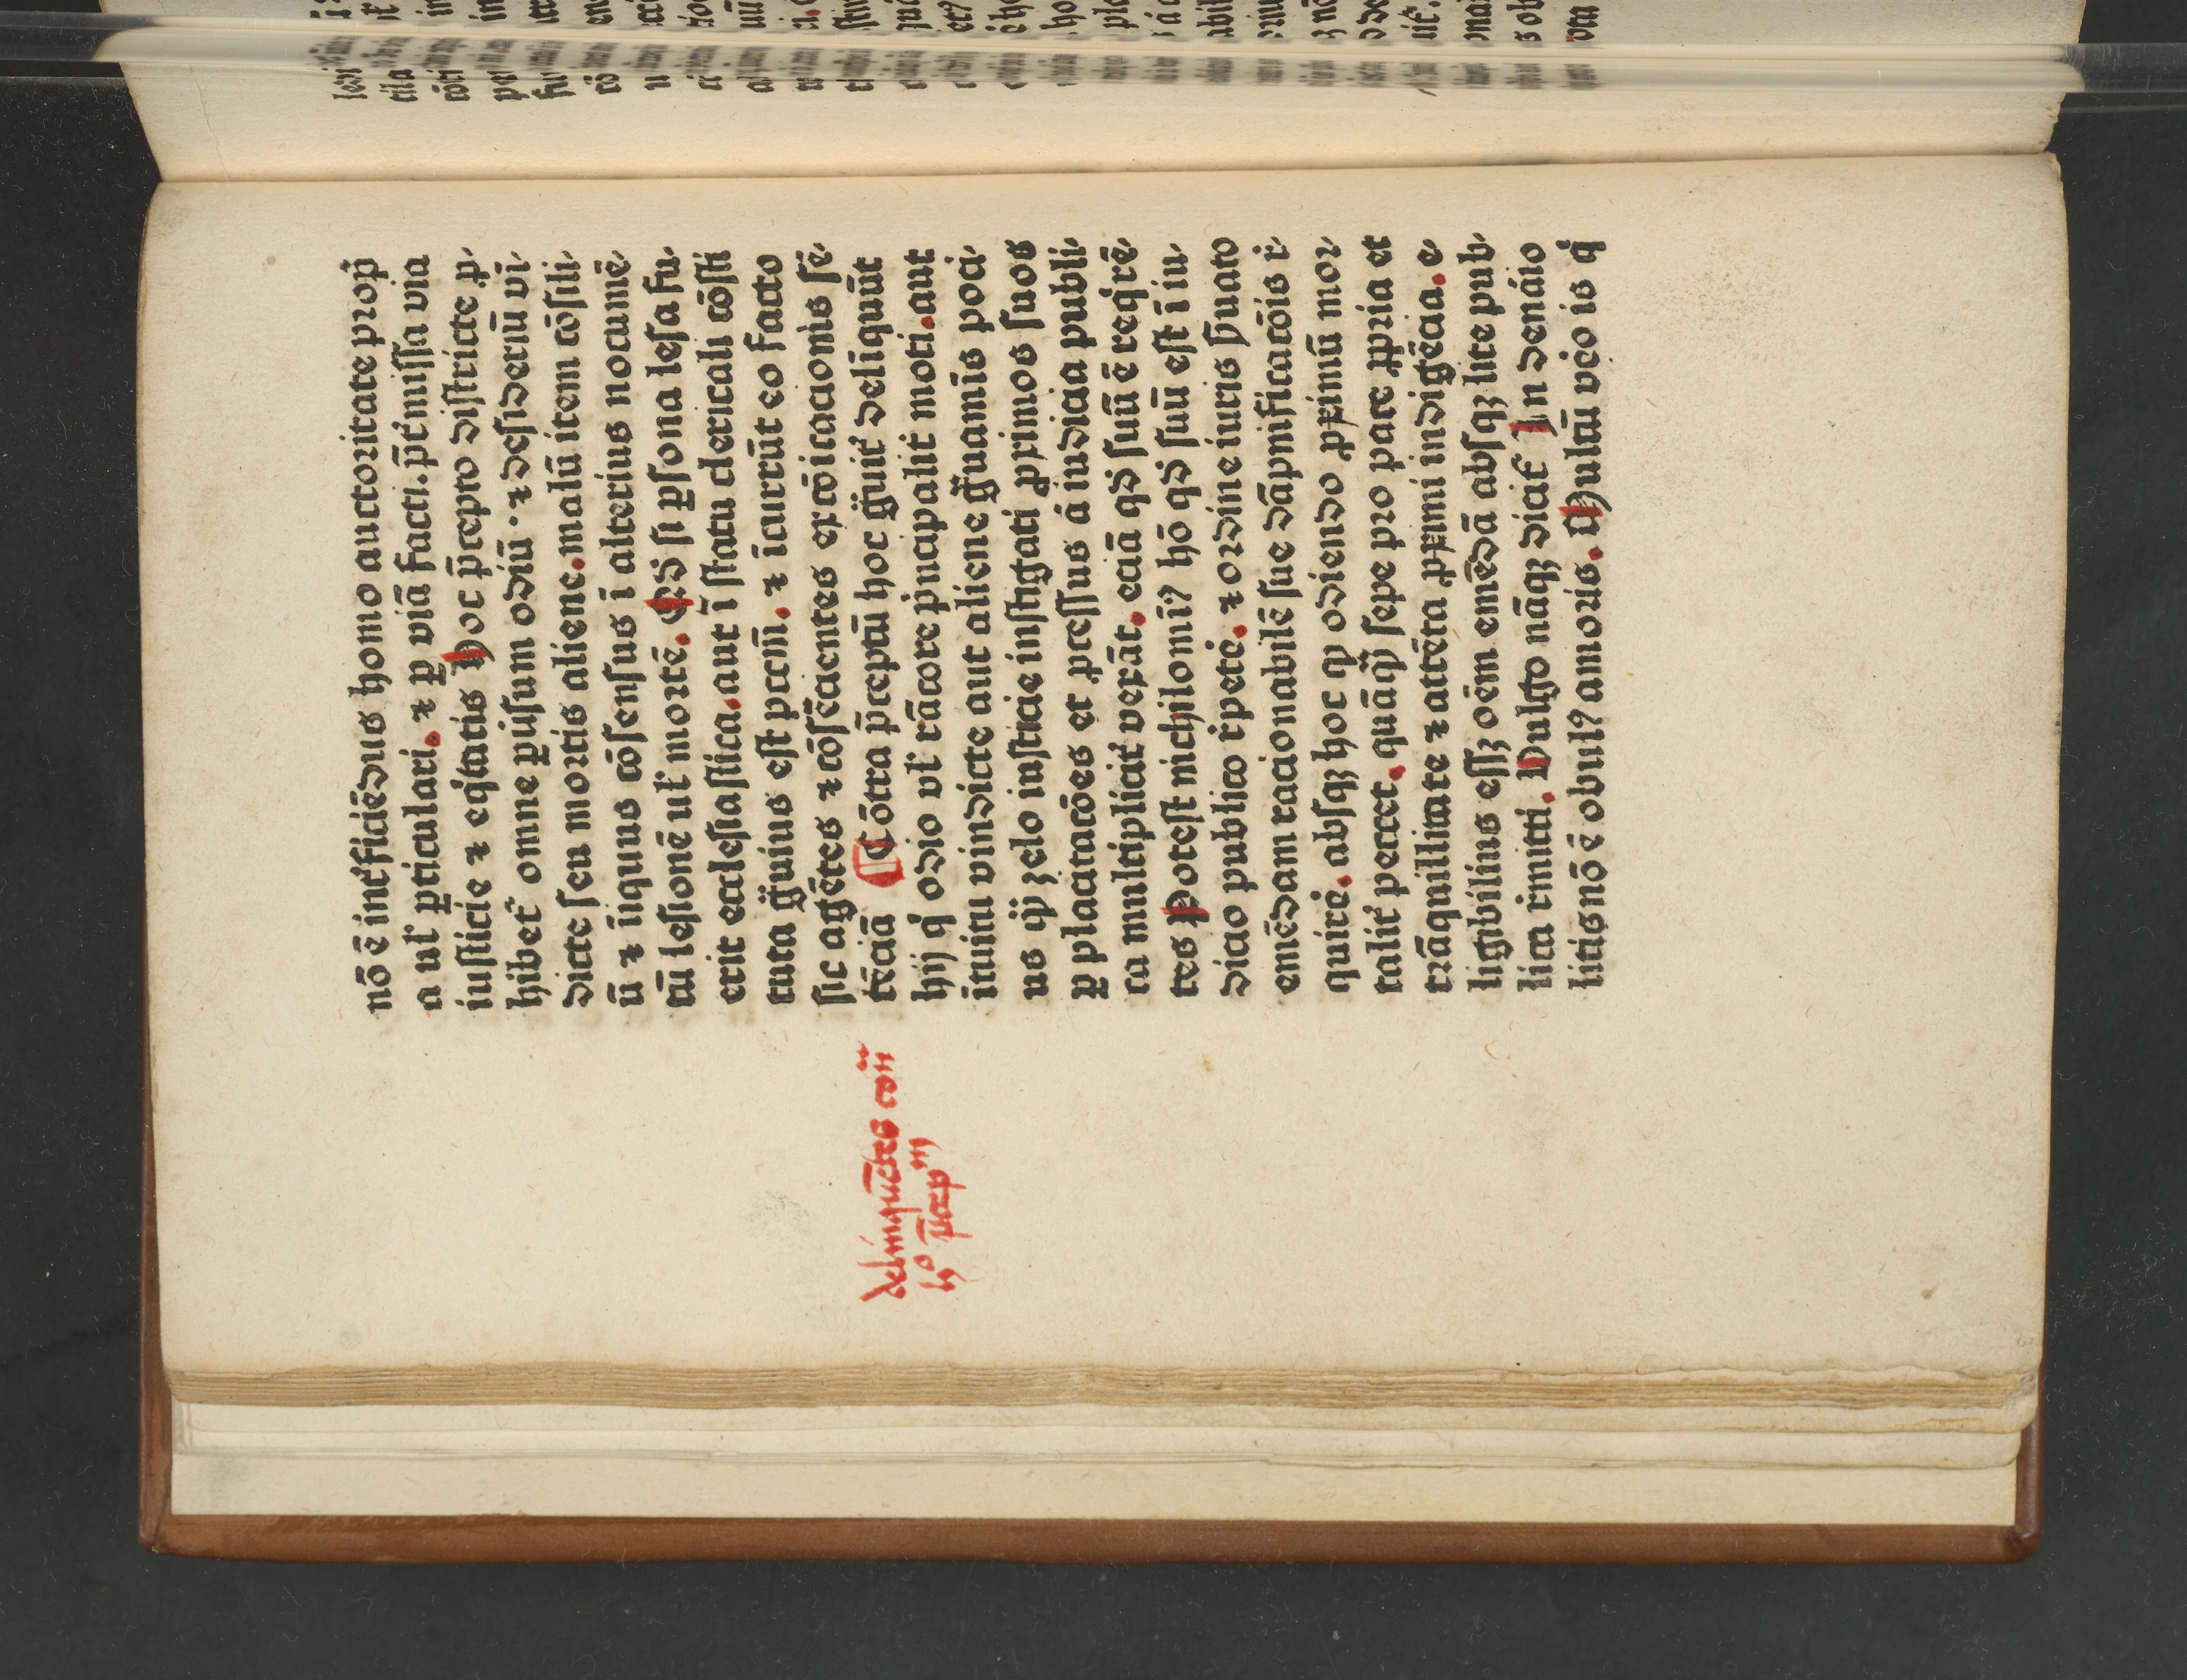 nō ē inťficiēdus homo auctoritate prop̄
a uľ ꝑticulari. ⁊ ꝑ viā facti. p̄ťmissa via
iusticie ⁊ eq̇tatis Hoc p̄cepto districte ꝓ-
hibeť omne ꝑuersum odiū. ⁊ desideriū vī-
dicte seu mortis aliene. malū item cōsili-
ū ⁊ īiquus cōsensus ī alterius nocumē-
tū lesionē uľ mortē. Qd si ꝑsona lesa fu-
erit ecclesiastica. aut ī statu clericali cōsti
tuta gͣuius est pccm̄. ⁊ īcurrūt eo facto
sic agētes ⁊ cōsēcientes excōicacionis sē-
tēciā ¶ Cōtra p̄ceptū hoc gͣuiť delīquūt
hij q̇ odio vľ rācore pͥncipaliť moti. aut
ītuitu vindicte aut aliene gͣuamīs poci-
us qͣ zelo iusticie instigati ꝓximos suos
ꝑ placitacōes et ꝓcessus ad iudicia publi-
ca multipliciť vexāt. eciā qd suū ē req̇rē-
tes Potest nichilomīꝰ hō qd suū est ī iu-
dicio publico rͤpetė. ⁊ ordine iuris ẜuato
emēdam racionabilē sue dāpnificacōis rͤ-
quirė. absqꝫ hoc ꝙ odiendo ꝓximū mor-
taliť peccet. quāqͣ sepe pro pace ꝓpria et
trāquillitate ⁊ attēta ꝓximi indigēcia. e-
ligibilius essꝫ oēm emēdā absqꝫ lite pub-
lica rͤmitti. Vulgo nāqꝫ diciť In denaͣio
litis nō ē obulꝰ amoris. Multū vėo is q̇
delinquētes con̄
h° p̄cep̄m